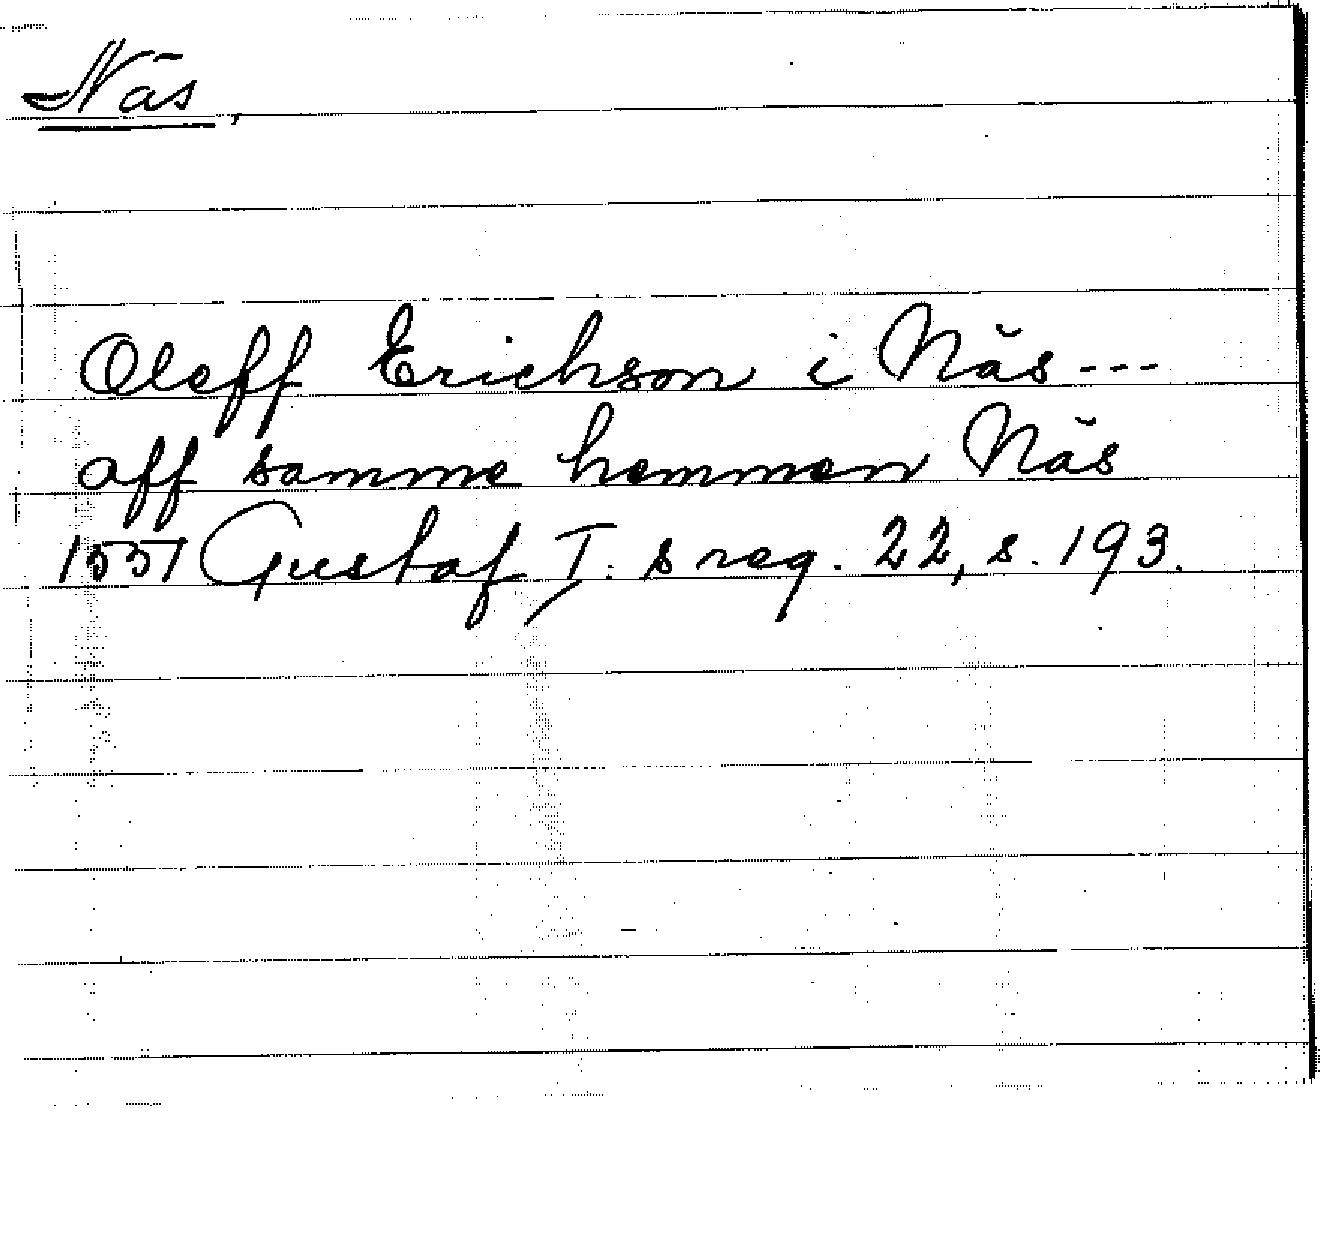 Näs,
Oleff Erichson i Näs ---
aff samme hemman Näs
1557 Gustaf I:s reg. 22, s. 193.